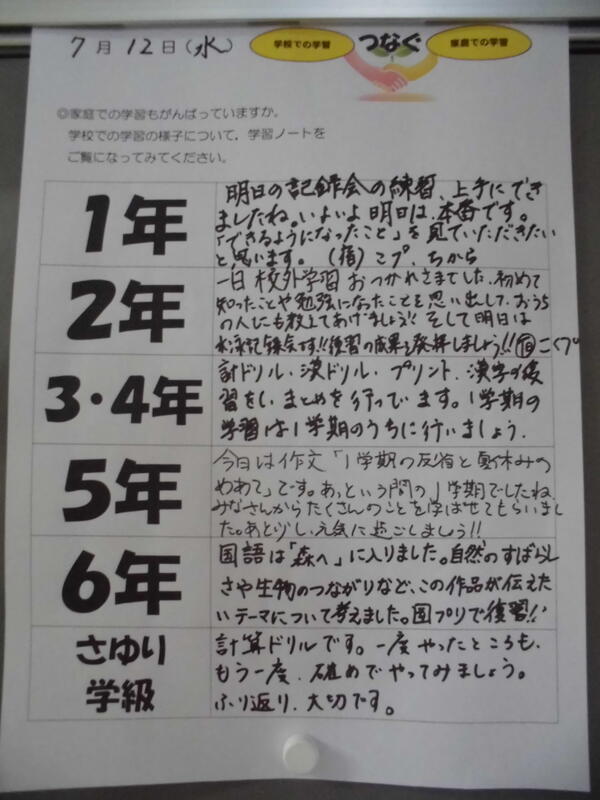 7月12日(水)
学校での学習 つなぐ 家庭での学習
◎家庭での学習もがんばっていますか。
学校での学習の様子について、学習ノートを
ご覧になってみてください。
1年
明日の記録会の練習、上手にでき
ましたね。いよいよ明日は、本番です。
「できるようになったこと」を見ていただきたい
と思います。(宿)こプ、ちから
2年
一日校外学習おつかれさまでした。初めて
知ったことや勉強になったことを思い出して、おうち
の人にも教えてあげましょう!!そして明日は
水泳記録会です!!練習の成果を発揮しましょう!!宿こくプ
3・4年
計ドリル・漢ドリル・プリント、漢字の復
習をし、まとめを行っています。1学期の
学習は1学期のうちに行いましょう。
5年
今日は作文「1学期の反省と夏休みの
めあて」です。あっという間の1学期でしたね。
みなさんからたくさんのことを学ばせてもらいまし
た。あと少し、元気に過ごしましょう!!
6年
国語は「森へ」に入りました。自然のすばらし
さや生物のつながりなど、この作品が伝えた
いテーマについて考えました。国プリで復習!!
さゆり
学級
計算ドリルです。一度やったところも、
もう一度、確めでやってみましょう。
ふり返り、大切です。